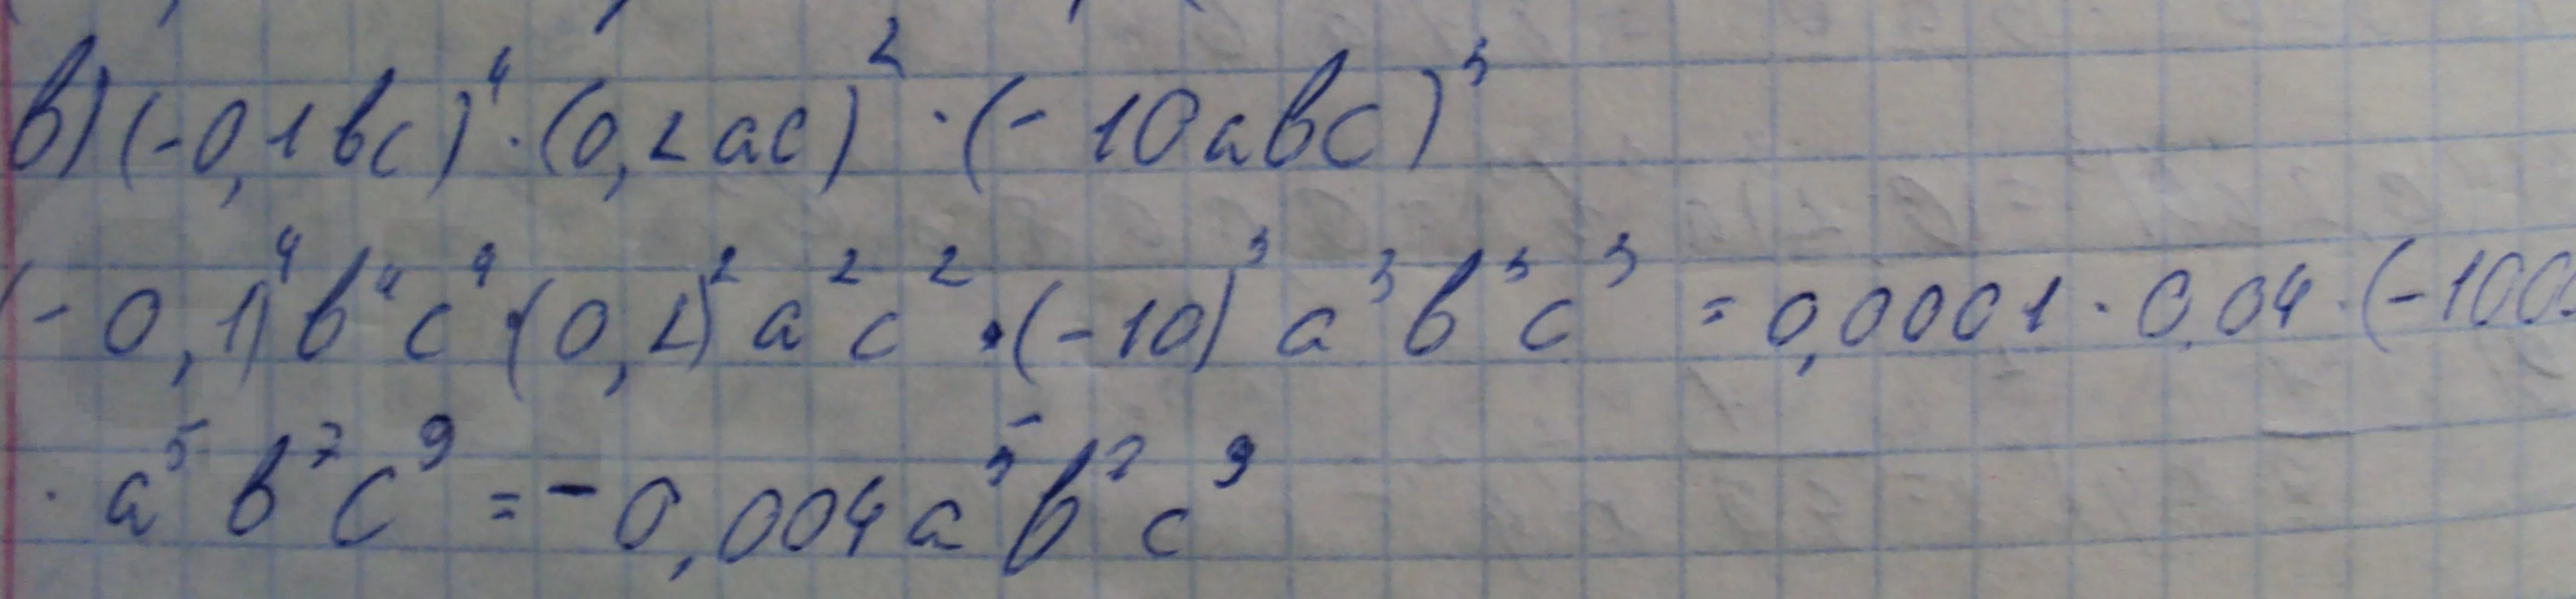 в) (-0,1bc)⁴ · (0,2ac)² · (-10abc)³
(-0,1)⁴b⁴c⁴ · (0,2)²a²c² · (-10)³a³b³c³ = 0,0001 · 0,04 · (-100
· a⁵b⁷c⁹ = -0,004a⁵b⁷c⁹